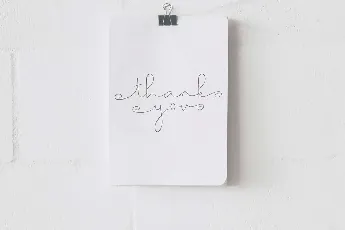 thanks
you